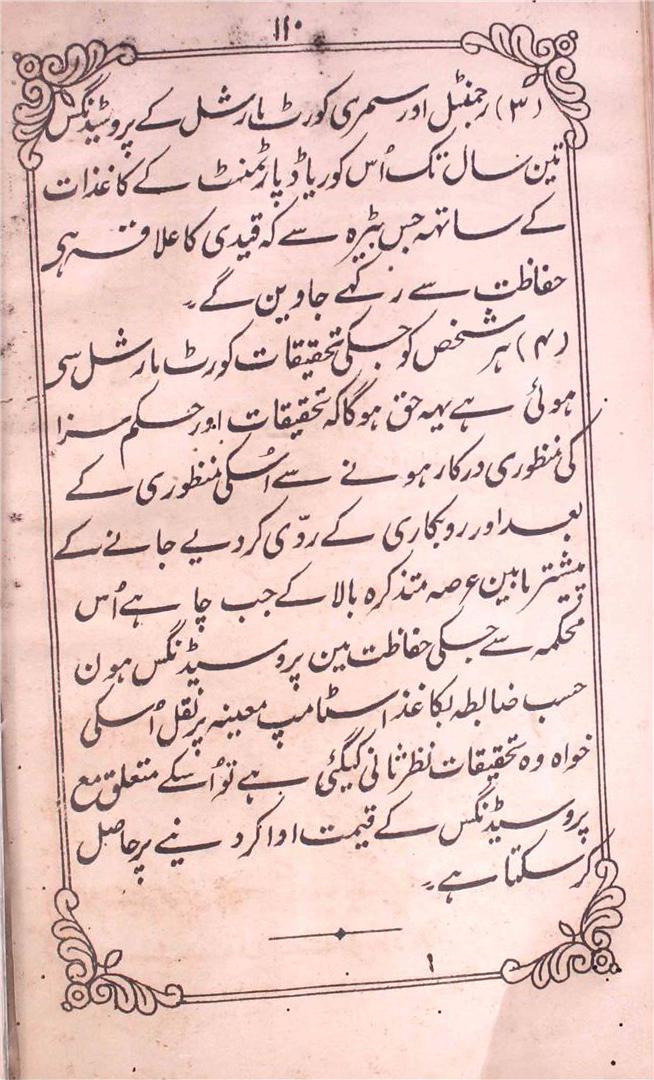 ۱۱۰
(۳) رجمنٹل اور سمری کورٹ مارشل کے پروسیڈنگس
تین سال تک اُس کور یا ڈپارٹمنٹ کے کاغذات
کے ساتھہ جس بٹیرہ سے کہ قیدی کا علاقہ ہی
حفاظت سے رکہے جاوین گے۔
(۴) ہر شخص کو جسکی تحقیقات کورٹ مارشل سی
ہوئی ہے یہہ حق ہوگا کہ تحقیقات اور حکم سزا
کی منظوری درکار ہونے سے اُسکی منظوری کے
بعد اور روبکاری کے ردّی کردیے جانے کے
پیشتر مابین عرصہ متذکرہ بالا کے جب چاہے اُس
محکمہ سے جسکی حفاظت مین پروسیڈنگس ہون
حسب ضابطہ بکاغذ اسٹامپ معینہ پر نقل اُسکی
خواہ وہ تحقیقات نظرثانی کیگئی ہے تو اُسکے متعلق مع
پروسیڈنگس کے قیمت ادا کر دینے پر حاصل
کرسکتا ہے۔
۱